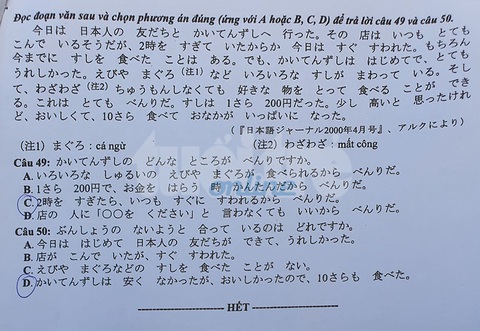 Đọc đoạn văn sau và chọn phương án đúng (ứng với A hoặc B, C, D) để trả lời câu 49 và câu 50.
今日は 日本人の 友だちと かいてんずしへ 行った。その 店は いつも とても
こんで いるそうだが、2時を すぎて いたからか 今日は すぐ すわれた。もちろん
今までに すしを 食べた ことは ある。でも、かいてんずしは はじめてで、とても
うれしかった。えびや まぐろ(注1) など いろいろな すしが まわって いる。そし
て、わざわざ(注2) ちゅうもんしなくても 好きな 物を とって 食べる ことが でき
る。これは とても べんりだ。すしは 1さら 200円だった。少し 高いと 思ったけれ
ど、おいしくて、10さら 食べて おなかが いっぱいに なった。
(『日本語ジャーナル2000年4月号』、アルクにより)
(注1) まぐろ : cá ngừ (注2) わざわざ : mất công
Câu 49: かいてんずしの どんな ところが べんりですか。
A. いろいろな しゅるいの えびや まぐろが 食べられるから べんりだ。
B. 1さら 200円で、お金を はらう 時 かんたんだから べんりだ。
C. 2時を すぎたら、いつも すぐに すわれるから べんりだ。
D. 店の 人に「〇〇を ください」と 言わなくても いいから べんりだ。
Câu 50: ぶんしょうの ないようと 合って いるのは どれですか。
A. 今日は はじめて 日本人の 友だちが できて、うれしかった。
B. 店が こんで いたが、すぐ すわれた。
C. えびや まぐろなどの すしを 食べた ことが ない。
D. かいてんずしは 安く なかったが、おいしかったので、10さらも 食べた。
HẾT